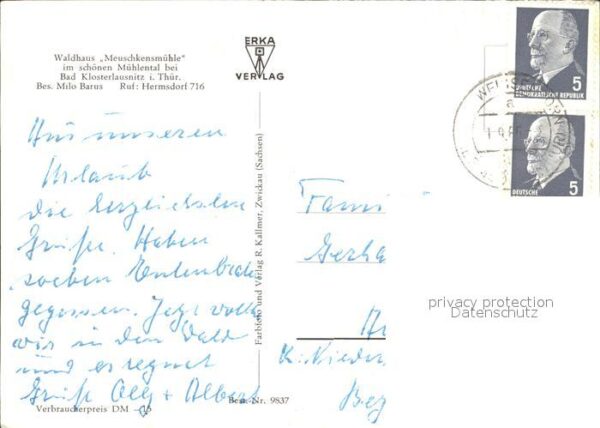 Waldhaus „Meuschkensmühle"
im schönen Mühlental bei
Bad Klosterlausnitz i. Thür.
Bes. Milo Barus Ruf: Hermsdorf 716
ERKA
VERLAG
5
DEUTSCHE
DEMOKRATISCHE REPUBLIK
5
DEUTSCHE
Aus unseren
Urlaub
die herzlichsten
Grüße. Haben
soeben Entenbraten
gegessen. Jetzt wollen
wir in den Wald
und es regnet
Grüße Olly + Albert
Verbraucherpreis DM -,15
Best.-Nr. 9837
Farbfoto und Verlag R. Kallmer, Zwickau (Sachsen)
Fami
Gerha
K. Nieder
Bez
privacy protection
Datenschutz